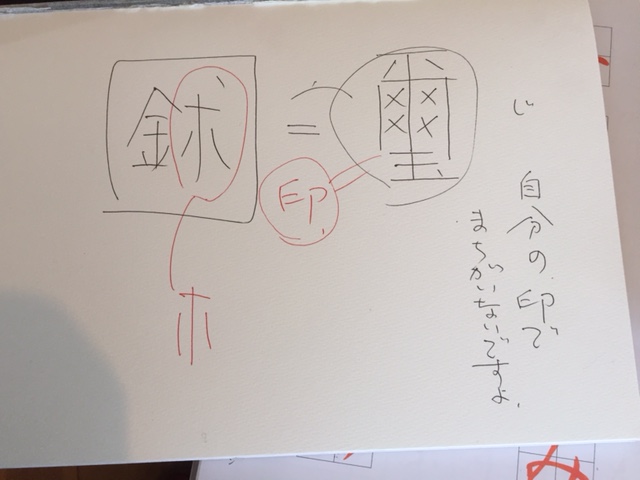 じ
自分の印で
まちがいないですよ。
璽
＝
鉥
印
ホ
み